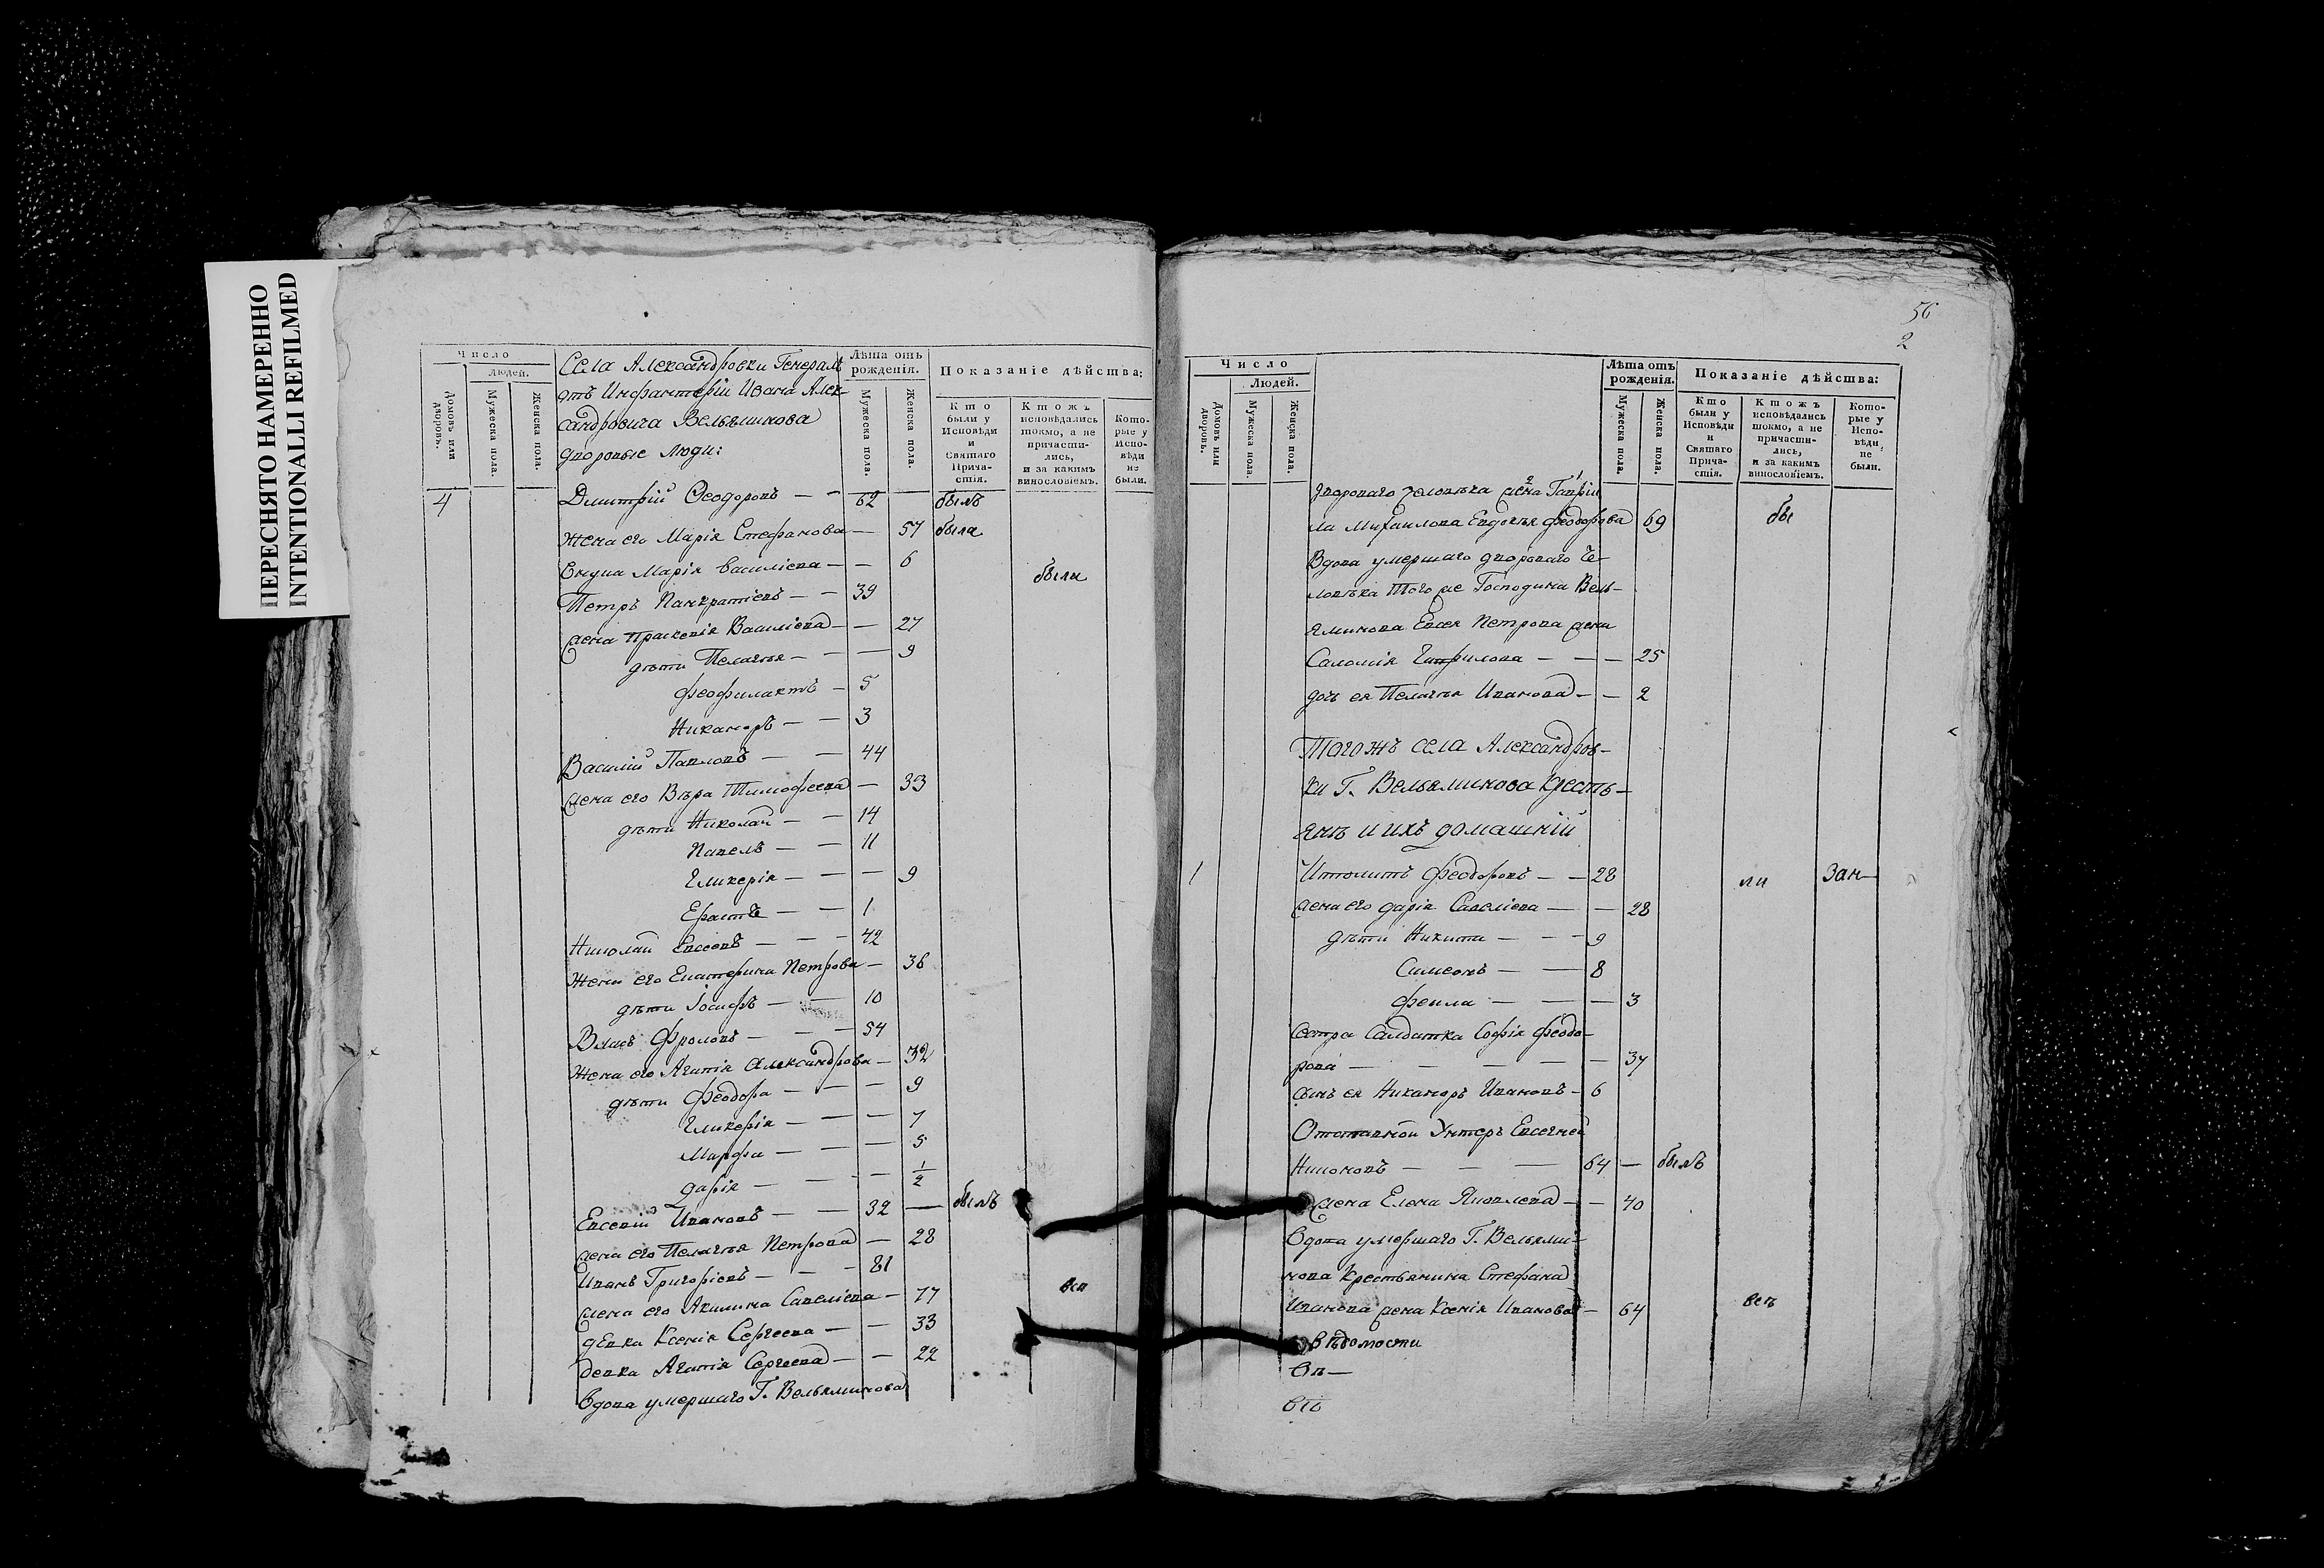 ПЕРЕСНЯТО НАМЕРЕННО
INTENTIONALLI REFILMED
Число
людей.
Домовъ или дворовъ.
Мужеска пола.
Женска пола.
Села Александровки Генералъ
отъ Инфантеріи Ивана Алек-
сандровича Вельяминова
дворовые люди:
Лѣта отъ рожденія.
Мужеска пола.
Женска пола.
Показаніе дѣйства:
Кто были у Исповѣди и Святаго Прича-стія.
Ктожъ исповѣдались токмо, а не причасти-лись, и за какимъ винословіемъ.
Кото-рые у Испо-вѣди не были.
4 Димитрій Ѳеодоровъ — — 62 былъ
жена его Марія Стефанова — 57 была
Внука Марія Василіева — — 6
были
Петръ Панкратіевъ — — 39
жена Праскевія Василіева — — 27
дѣти Пелагея — — — 9
Феофилактъ — 5
Никаноръ — — 3
Василій Павловъ — — 44
жена его Вѣра Тимофеева — 33
дѣти Николай — — 14
Павелъ — — 11
Гликерія — — — 9
Ерастъ — — 1
Николай Евсеевъ — — — 42
жена его Екатерина Петрова — 36
дѣти Іосифъ — — 10
Власъ Фроловъ — — — 54
жена его Агапія Александрова — 32
дѣти Феодора — — — 9
Гликерія — — — 7
Марфа — — — 5
Дарія — — — 1/2
Евсевій Ивановъ — — 32 — былъ
жена его Пелагея Петрова — 28
Иванъ Григоріевъ — — — 81
жена его Акилина Савеліева — 77
всѣ
дѣвка Ксенія Сергеева — — 33
девка Агапія Сергеева — — 22
Вдова умершаго Г. Вельяминова
56
2
Число
Людей.
Домовъ или дворовъ.
Мужеска пола.
Женска пола.
Лѣта отъ рожденія.
Мужеска пола.
Женска пола.
Показаніе дѣйства:
Кто были у Исповѣди и Святаго Прича-стія.
Ктожъ исповѣдались токмо, а не причасти-лись, и за какимъ винословіемъ.
Кото-рые у Испо-вѣди не были.
двороваго человѣка жена Гаврiи
ла Михаилова Евдокея Феодорова 69 бы
Вдова умершаго двороваго че-
ловѣка того же Господина Вель-
яминова Евсея Петрова жена
Саломія Гаврилова — — — 25
дочь ея Пелагея Иванова — — 2
Тогожъ села Александров-
ки Г. Вельяминова кресть-
янѣ и ихъ домашній
1 Ипполитъ Феодоровъ — — 28 ли Зан—
жена его Дарія Савеліева — — 28
дѣти Никита — — — 9
Симеонъ — — 8
Фекла — — — 3
Сестра Салдатка Софія Феодо-
рова — — — — — 37
сынъ ея Никаноръ Ивановъ — 6
Отставной Унтеръ Евсегней
Никоновъ — — — 64 — былъ
жена Елена Яковлева — — 40
Вдова умершаго Г. Вельями-
нова крестьянина Стефана
Иванова жена Ксенія Иванова — 64 всѣ
вѣдомости